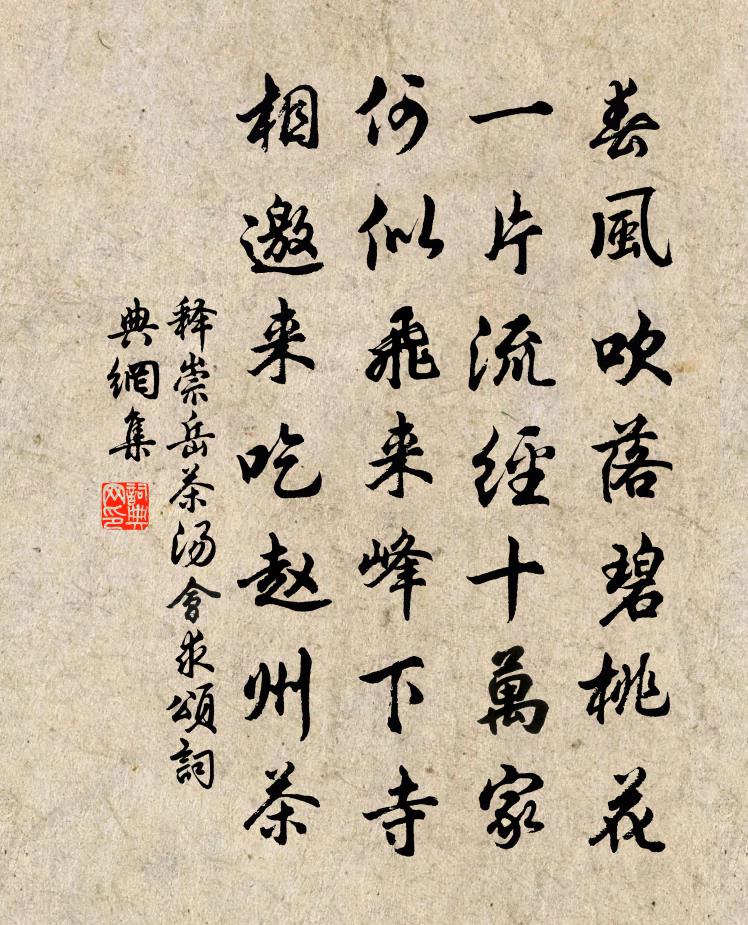 春風吹落碧桃花
一片流經十萬家
何似飛来峰下寺
相邀来吃赵州茶
释崇岳茶汤會求頌詞
典網集
詞典網印